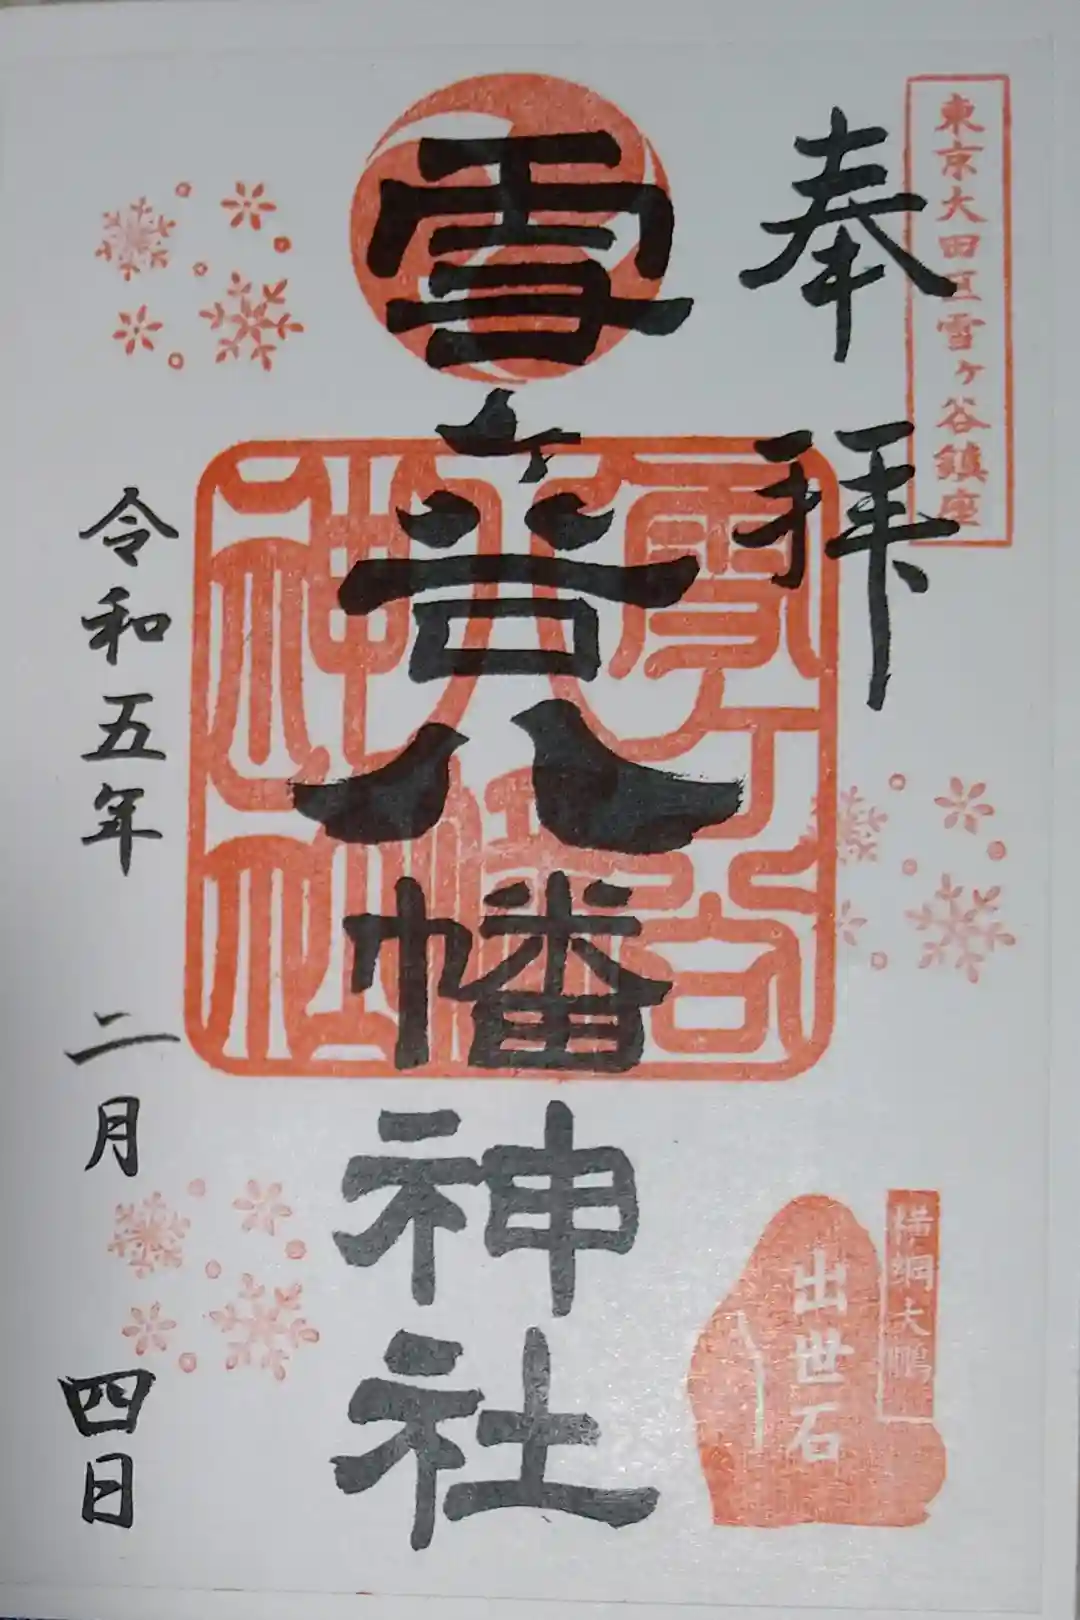 東京大田区雪ヶ谷鎮座
奉拝
雪ヶ谷八幡神社
雪ヶ谷
八幡
神社
横綱大鵬
出世石
令和五年 二月 四日